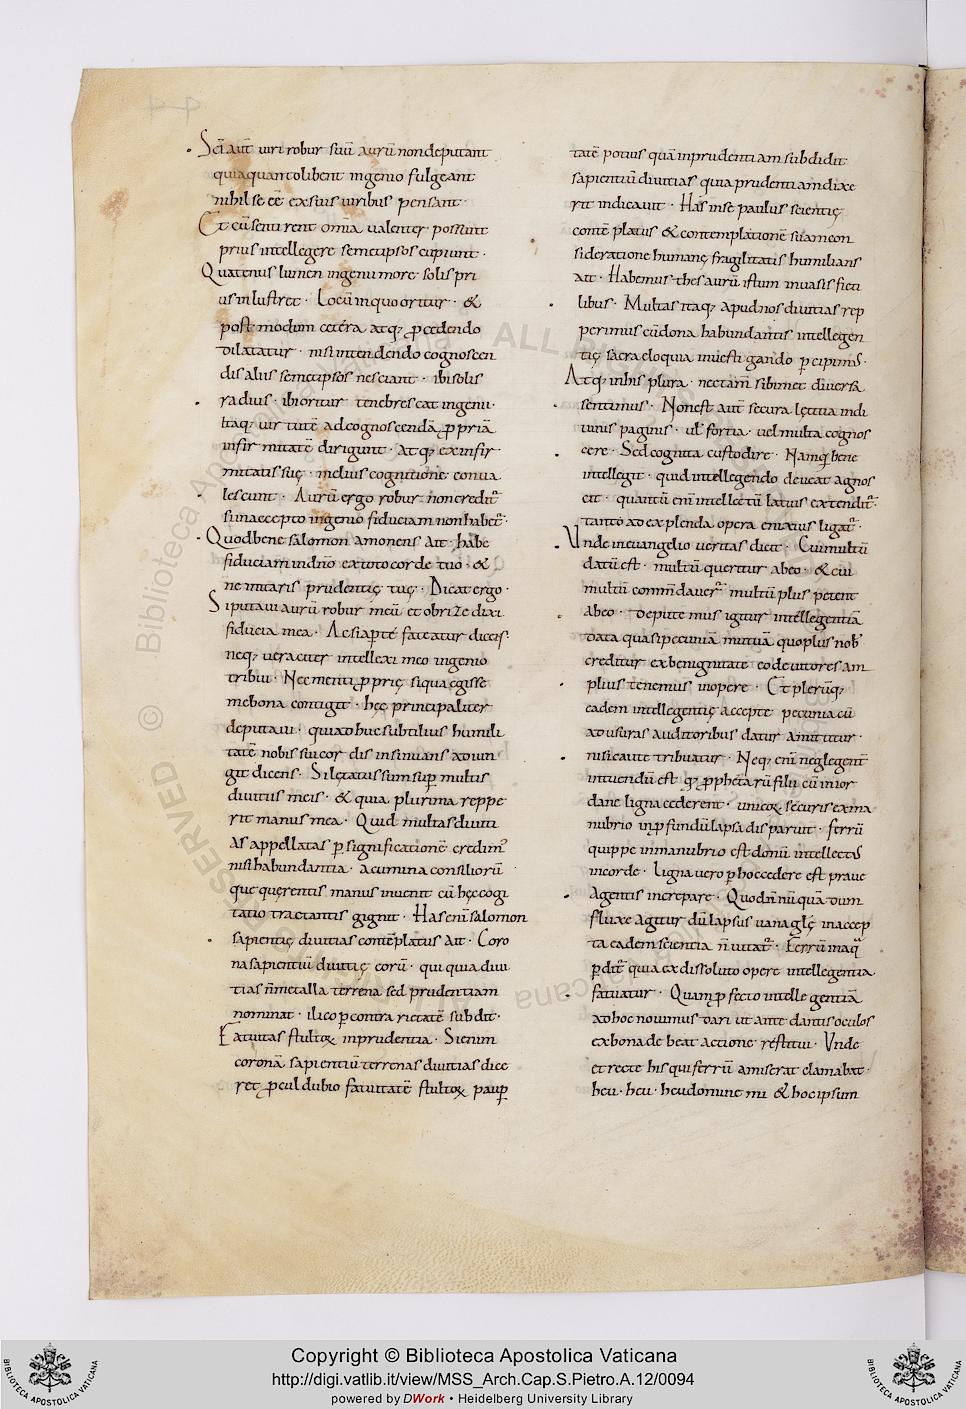 Sci aut uiri robur suu auru non deputant
quia quantolibent ingenio fulgeant
nihil se ee ex suis uiribus pensant ·
Et cu sentirent omia ualenter possunt
prius intellegere semetipsos cupiunt ·
Quatenus lumen ingenii more solis pri
us inlustret · Locu in quo oritur · &
post modum cetera atq; pcedendo
dilatatur · nisi intendendo cognoscen
dis aliis semetipsos nesciant · ibi solis
radius · ibi oritur tenebrescat ingeniu ·
Itaq; uir tute ad cognoscenda ppria
infirmitate dirigunt · atq; ex infir
mitatis suę · melius cognitione conua
lescunt · Auru ergo robur non credit
sui naccepto ingenio fiduciam non habet ·
Quod bene salomon amonens ait · habe
fiduciam in dno ex toto corde tuo · &
ne innitaris prudentię tuę · Dicat ergo ·
Si putaui auru robur meu et obrize dixi
fiducia mea · Ac si aperte fateatur dicens
neq; ueraciter intellexi meo ingenio
tribui · Nec menti pprię siqua egisse
me bona contigit · hęc principaliter
deputaui · qui adhuc subtilius humili
tate nobis sui cordis insinuans adiun
git dicens · Si lętatus sum sup multis
diuitiis meis · & quia plurima reppe
rit manus mea · Quid multas diuiti
as appellatas p significatione credim
nisi habundantia · acumina consilioru
que querentis manus inuenit cu hęc cogi
tatio tractantis gignit · Has eni salomon
sapientię diuitias conteplatus ait · Coro
na sapientiu diuitię eoru · qui quia diui
tias n metalla terrena sed prudentiam
nominat · ilico p contrarietate subdit ·
Fatuitas stultor inprudentia · Si enim
corona sapientiu terrenas diuitias dice
ret pcul dubio fatuitate stultor paup
tate potius qua inprudentiam subdidit
sapientiu diuitias quia prudentiam dixe
rit indicauit · Has in se paulus scientię
conteplatus & contemplatione sua mcon
sideratione humanę fragilitatis humilians
ait · Habemus thesauru istum in uasis ficti
libus · Multas itaq; apud nos diuitias rep
perimus cu dona habundantis intellegen
tię sacra eloquia inuestigando pcipims ·
Atq; in his plura · nec tam sibimet diuersa
sentimus · Non est aut secura lętitia in di
uinis paginis · ul fortia · uel multa cognos
cere · Sed cognita custodire · Nam q bene
intellegit · quid intellegendo deueat agnos
cit · quantu eni intellectu latius extendit ·
tanto ad explenda opera enixius ligat ·
Vnde in euangelio ueritas dicit · Cui multu
datu est · multu queritur ab eo · & cui
multu commdauer multu plus petent
ab eo · deputemus igitur intellegentia
data quasi pecunia mutua quo plus nob
creditur ex benignitate eo deuitores am
plius tenemus in opere · Et pleruq;
eadem intellegentię accepte pecunia cu
ad usuras auditoribus datur amittitur ·
nisi caute tribuatur · Neq; eni neglegent
intuendu est q; pphetaru filii cu in ior
dane ligna cederent · unicox securis ex ma
nubrio in pfundu lapsa disparuit · ferru
quippe in manubrio est donu intellectus
in corde · Ligna uero p hoc cedere est praue
agentis increpare · Quod nnuqua dum
fluxe agitur du lapsus uanę glę in accep
ta eadem scientia n uitat · Ferru in aqua
pdit quia ex dissoluto opere intellegentia
fatuatur · Quam pfecto intellegentia
ad hoc nouimus dari ut ante dantis oculos
ex bona debeat actione restitui · Vnde
et recte his qui ferru amiserat clamabat ·
heu · heu · heu domine mi & hoc ipsum
Copyright © Biblioteca Apostolica Vaticana
http://digi.vatlib.it/view/MSS_Arch.Cap.S.Pietro.A.12/0094
powered by DWork • Heidelberg University Library